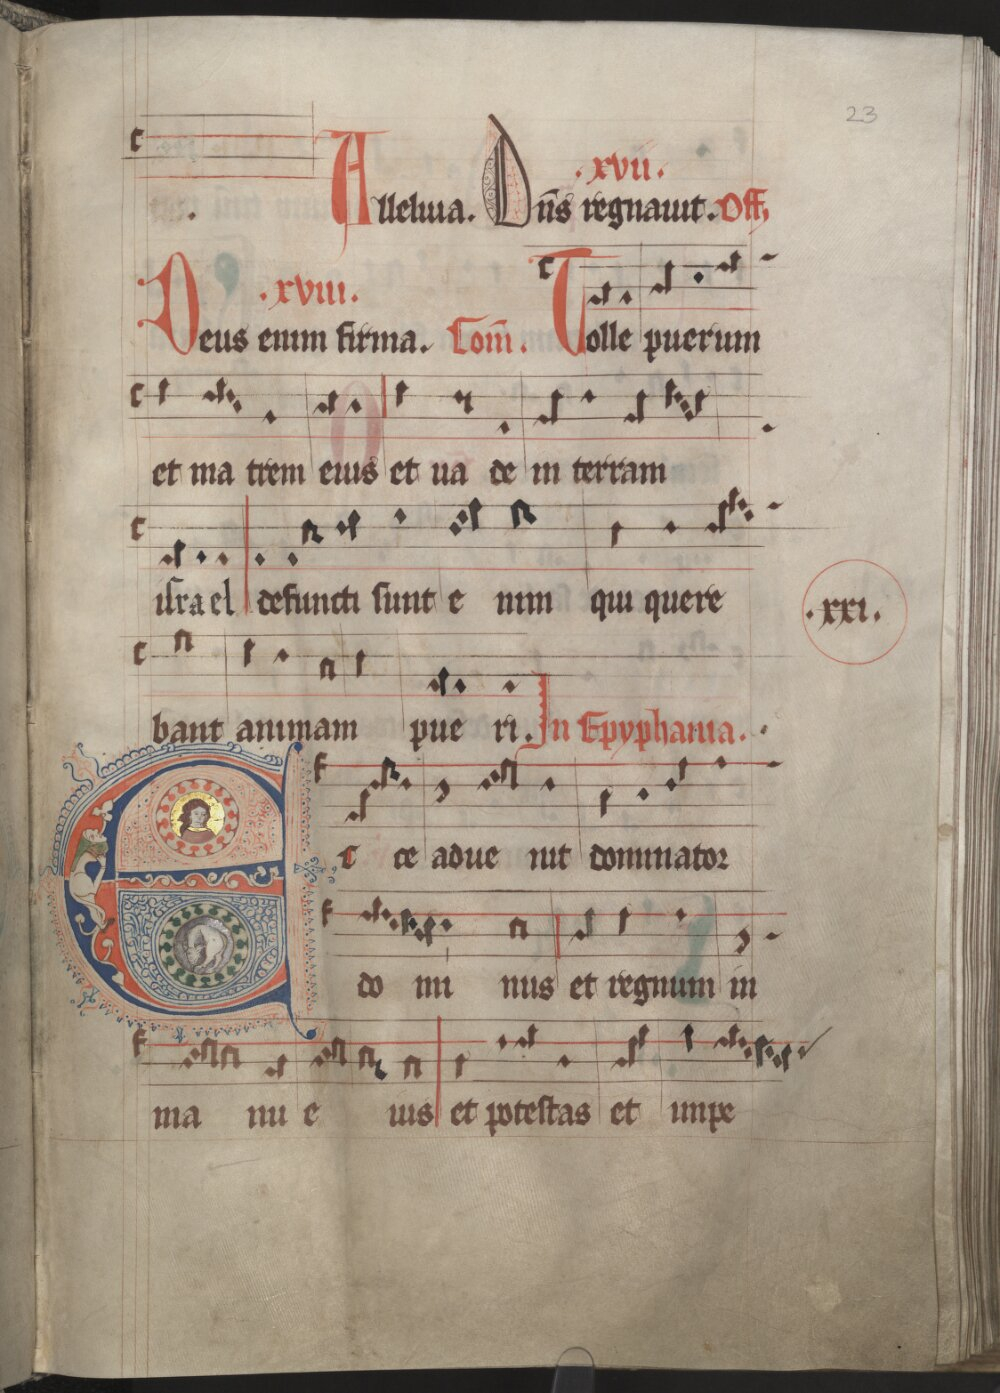 23
.xvii.
Alleluia. Dn̄s regnauit. Off,
.xviii.
Deus enim firma. Com̄. Tolle puerum
et ma trem eius et ua de in terram
israel defuncti sunt e nim qui quere
.xxi.
bant animam pue ri. In Epyphania.
E c ce adue nit dominator
do mi nus et regnum in
ma nu e ius et potestas et impe